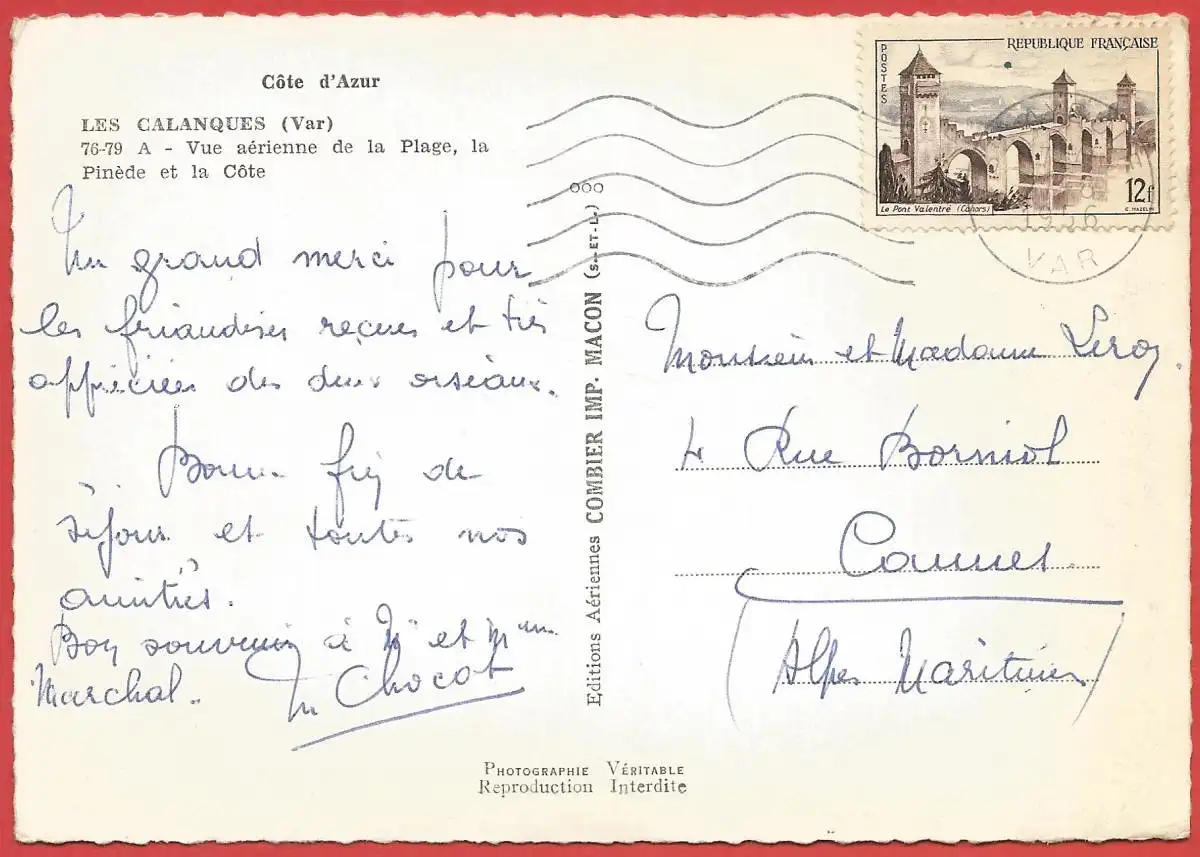 Côte d'Azur
LES CALANQUES (Var)
76-79 A - Vue aérienne de la Plage, la
Pinède et la Côte
Un grand merci pour
les friandises reçues et très
appréciées des deux oiseaux.
Bonne fin de
séjour et toutes nos
amitiés.
Bon souvenir à Mr et Mme
Marchal.
M Chocat
Editions Aériennes COMBIER IMP. MACON (S.-ET-L.)
ooo
PHOTOGRAPHIE VÉRITABLE
Reproduction Interdite
POSTES
REPUBLIQUE FRANÇAISE
Le Pont Valentré (Cahors)
12f
C. MAZELIN
1956
VAR
Monsieur et Madame Leroy
4 Rue Borniol
Cannes
(Alpes Maritimes)